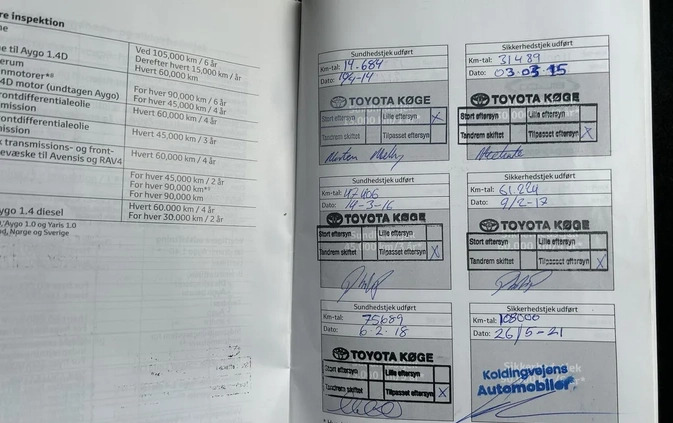 re inspektion
ne
ne til Aygo 1.4D
Ved 105,000 km / 6 år
Derefter hvert 15,000 km / år
erum
Hvert 60,000 km
nmotorer*⁸
4D motor (undtagen Aygo)
For hver 90,000 km / 6 år
For hver 45,000 km / 4 år
rontdifferentialeolie
mission
Hvert 60,000 km / 4 år
rontdifferentialeolie
mission
Hvert 45,000 km / 3 år
k transmissions- og front-
evæske til Avensis og RAV4
Hvert 60,000 km / 4 år
For hver 45,000 km / 2 år
For hver 90,000 km*⁹
For hver 90,000 km
ygo 1.4 diesel
Hvert 60.000 km / 4 år
For hver 30.000 km / 2 år
Aygo 1.0 og Yaris 1.0
nd, Norge og Sverige
Sundhedstjek udført
Km-tal: 14.684
Dato: -14
TOYOTA KØGE
Stort eftersyn Lille eftersyn X
Tandrem skiftet Tilpasset eftersyn
Sikkerhedstjek udført
Km-tal: 31489
Dato: 03.03.15
TOYOTA KØGE
Stort eftersyn Lille eftersyn
Tandrem skiftet Tilpasset eftersyn X
Sundhedstjek udført
Km-tal: 47406
Dato: 14-3-16
TOYOTA KØGE
Stort eftersyn Lille eftersyn
Tandrem skiftet Tilpasset eftersyn X
Sikkerhedstjek udført
Km-tal: 61.224
Dato: 9/2-17
TOYOTA KØGE
Stort eftersyn Lille eftersyn
Tandrem skiftet Tilpasset eftersyn X
Sundhedstjek udført
Km-tal: 75689
Dato: 6.2.18
TOYOTA KØGE
Stort eftersyn Lille eftersyn
Tandrem skiftet Tilpasset eftersyn X
Sikkerhedstjek udført
Km-tal: 108000
Dato: 26/5-21
Koldingvejens
Automobiler